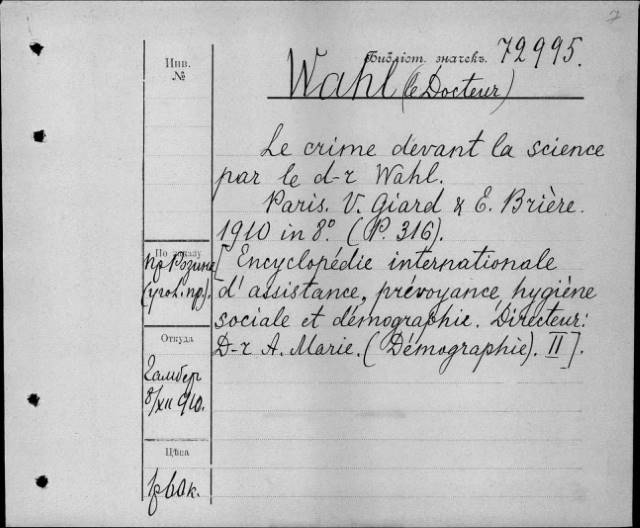 Библіот. значекъ. 72995.
Инв. №
Wahl (le Docteur)
Le crime devant la science
par le d-r Wahl.
Paris. V. Giard & E. Brière.
1910 in 8°. (P. 316).
[Encyclopédie internationale
d'assistance, prévoyance, hygiène
sociale et démographie. Directeur:
D-r A. Marie. (Démographie). II].
По заказу
пр Розина
(угол. пр).
Откуда
Гамбер
8/XII 910.
Цѣна
1р60к.